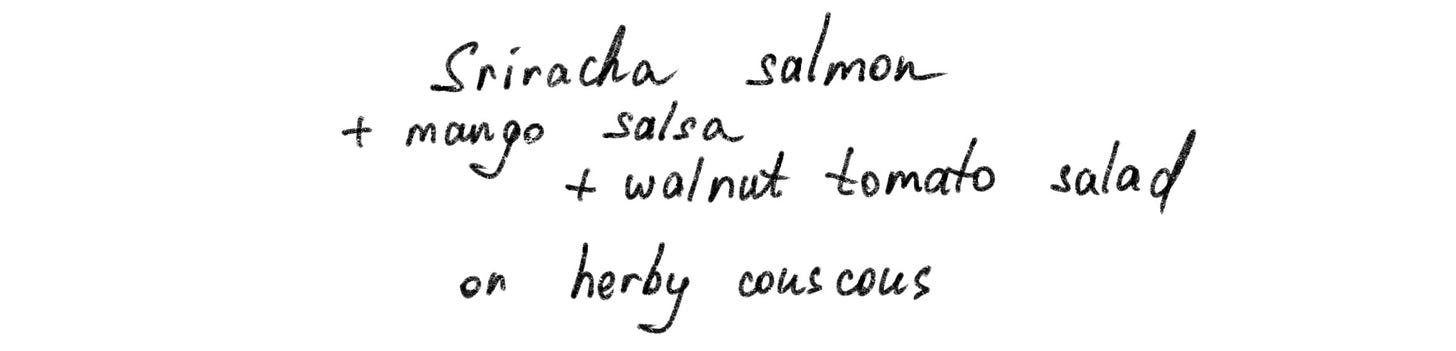 Sriracha salmon
+ mango salsa
+ walnut tomato salad
on herby couscous